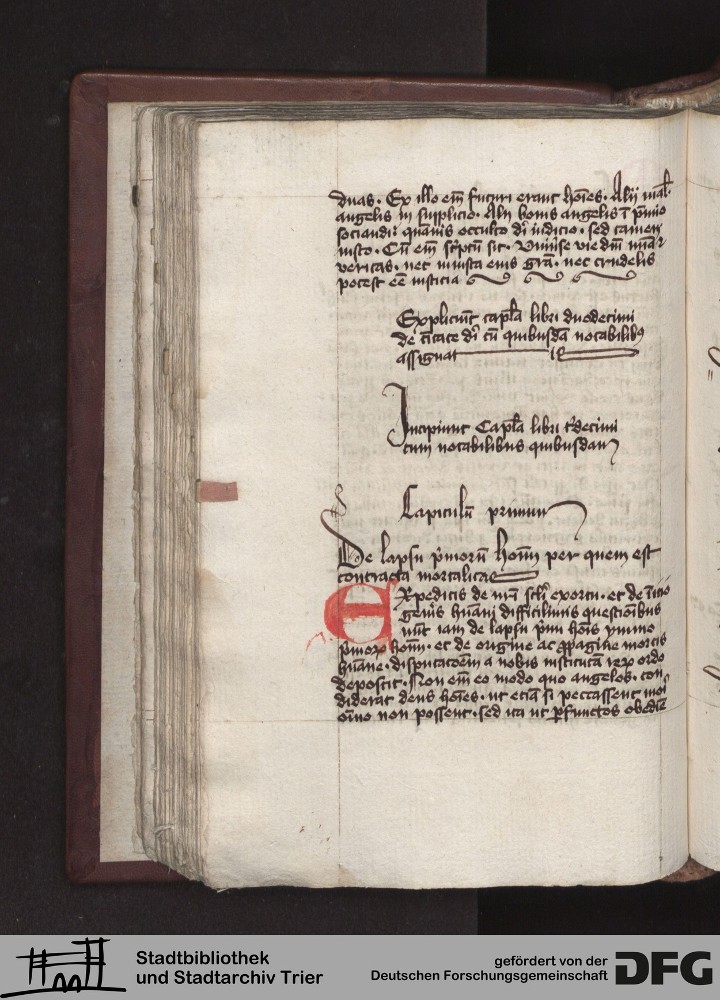 duas. Ex illo em̄ futuri erant hoīes. Alij mal̄
angelis in supplicio. Alij bonis angelis ī p̄mio
sociandi: quāuis occulto dī iudicio. sed tamen
iusto. Cū em̄ sc̄ptū sit. Vniu̓se vie dn̄i mīa ⁊
veritas. nec iniusta eius grā. nec crudelis
potest eē iusticia
Expliciūt capl̄a libri duodecimi
de c̄itate dī cū quibusdā notabilibꝰ
assignat
Incipiunt Capl̄a libri t̓decimi
cum notabilibus quibusdam
Capitulū primum
De lapsu p̄morū hoīm per quem est
contracta mortalitas
Expeditis de nr̄i sc̄li exortu. et de īitio
gen̓is hūani difficilimis questiōibus
nūc iam de lapsu p̄mi hoīs ymmo
p̄moꝝ hoīm. et de origine ac ꝓpagine mortis
hūane. disputacōem a nobis institutā reꝝ ordo
deposcit. Non em̄ eo modo quo angelos. con
diderat deus hoīes. ut etiā si peccassent mori
oīno non possent. sed ita ut ꝑfunctos obediē
Stadtbibliothek
und Stadtarchiv Trier
gefördert von der
Deutschen Forschungsgemeinschaft
DFG